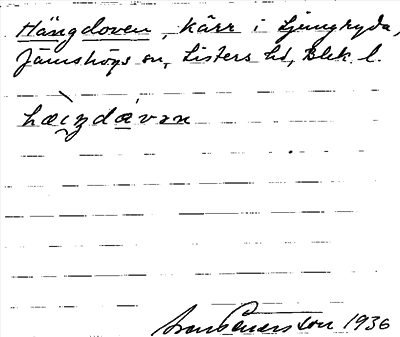 Hängdoven, kärr i Ljungryda,
Jämshögs sn, Listers hd, Blek. l.
hæ̀iŋdávən
1936